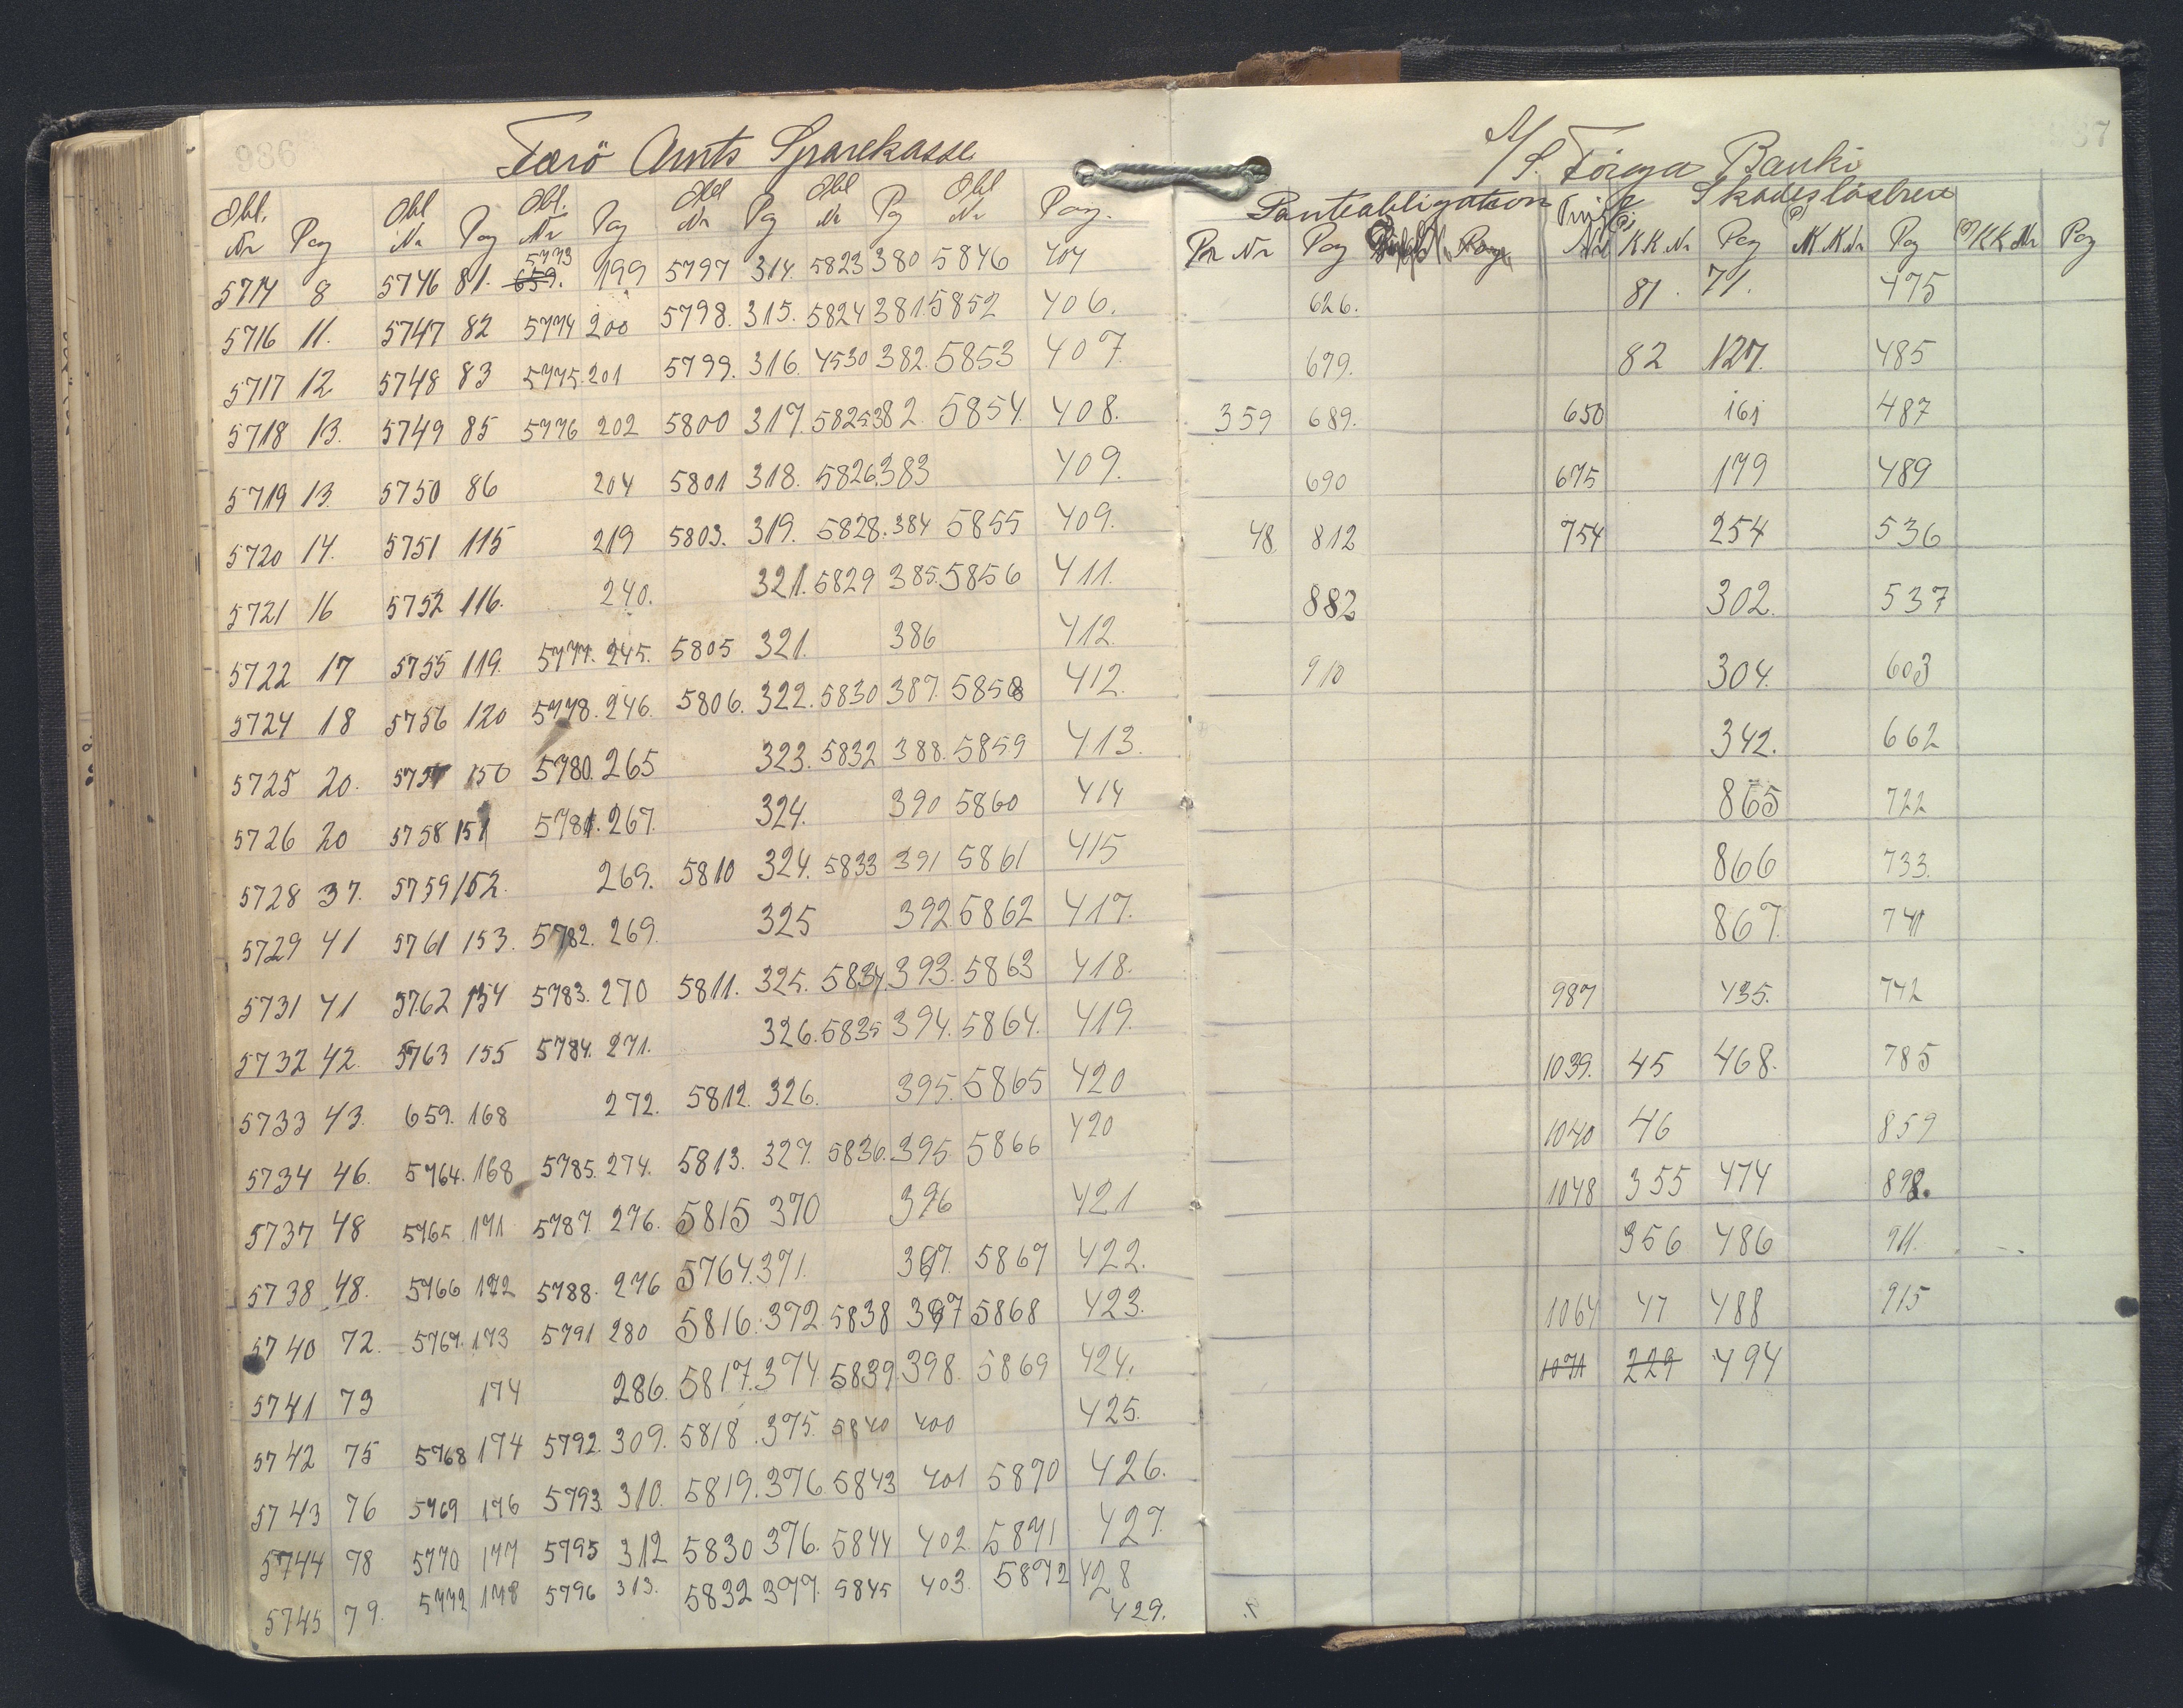 986
Færö Amts Sparekasse
Obl. Obl Obl. Obl Obl Obl
Nr Pag Nr Pag Nr Pag Nr Pag Nr Pag Nr Pag.
5773
5714 8 5746 81. 659. 199 5797 314. 5823 380 5846 404
5716 11. 5747 82 5774 200 5798. 315. 5824 381 5852 406.
5717 12 5748 83 5775. 201 5799. 316. 4530 382. 5853 407
5718 13. 5749 85 5776 202 5800 317. 5825 382. 5854. 408.
5719 13. 5750 86 204 5801 318. 5826. 383 409.
5720 14. 5751 115 219 5803. 319. 5828. 384 5855 409.
5721 16 5752 116. 240. 321. 5829 385. 5856 411.
5722 17 5755 119. 5777. 245. 5805 321. 386 412.
5724 18 5756 120 5778. 246. 5806. 322. 5830 387. 5858 412.
5725 20. 5757 150 5780. 265 323. 5832 388. 5859 413.
5726 20 5758 151 5781. 267. 324. 390 5860 414
5728 37. 5759 152. 269. 5810 324. 5833 391 5861 415
5729 41 5761 153. 5782. 269. 325 392 5862 417.
5731 41 5762 154 5783. 270 5811. 325. 5834. 393. 5863 418.
5732 42. 5763 155 5784. 271. 326. 5835 394. 5864. 419.
5733 43. 659. 168 272. 5812. 326. 395. 5865 420
5734 46. 5764. 168 5785. 274. 5813. 327. 5836. 395 5866 420
5737 48 5765 171 5787. 276. 5815 370 396 421
5738 48. 5766 172 5788. 276 5764. 371. 397. 5867 422.
5740 72. 5767. 173 5791 280 5816. 372 5838 397 5868 423.
5741 73 174 286. 5817. 374. 5839. 398. 5869 424.
5742 75 5768 174 5792. 309. 5818. 375. 5840 400 425.
5743 76 5769 176 5793. 310. 5819. 376 5843 401 5870 426.
5744 78 5770 177 5795 312 5830 376. 5844 402 5871 427.
5745 79. 5772 178 5796 313. 5832 377. 5845 403. 5872 428
429.
A/S. Föroya Banki
Panteobligation Skadeslösbreve
Pr Nr Pag Nr K K Nr Pag K K Nr Pag K K Nr Pag
626. 81. 71. 475
679. 82 127. 485
359 689. 650 161 487
690 675 179 489
48. 812 754 254 536
882 302. 537
910 304. 603
342. 662
865 722
866 733.
867. 741
987 435. 742
1039. 45 468. 785
1040 46 859
1048 355 474 898.
356 486 911.
1064 47 488 915
1071 229 494